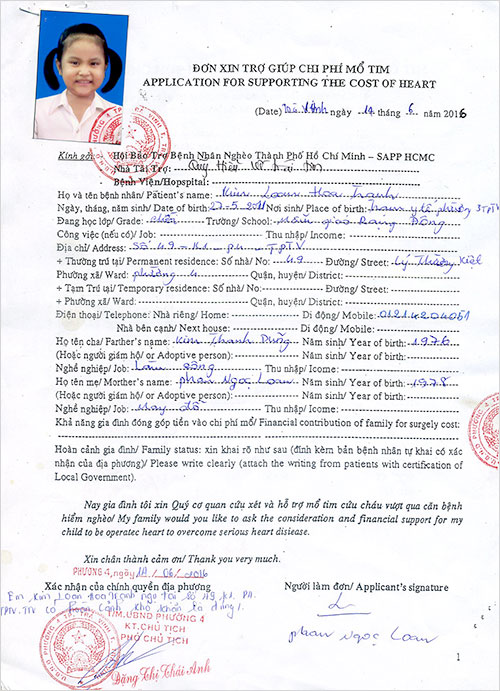 ĐƠN XIN TRỢ GIÚP CHI PHÍ MỔ TIM
APPLICATION FOR SUPPORTING THE COST OF HEART
(Date) ngày 14 tháng 6 năm 2016
Kính gởi: Hội Bảo Trợ Bệnh Nhân Nghèo Thành Phố Hồ Chí Minh – SAPP HCMC
Nhà Tài Trợ: Quỹ Hiểu Về Trái Tim
Bệnh Viện/Hopspital:
Họ và tên bệnh nhân/ Patient's name: Kim Loan Hoa Tranh
Ngày, tháng, năm sinh/ Date of birth: 27-5-2011 Nơi sinh/ Place of birth: Trạm y tế phường 3TPTV
Đang học lớp/ Grade: chồi Trường/ School: mẫu giáo Rạng Đông
Công việc (nếu có)/ Job: Thu nhập/ Income:
Địa chỉ/ Address: Số 49 - K1 - P4 - TPTV
+ Thường trú tại/ Permanent residence: Số nhà/ No: 49 Đường/ Street: Lý Thường Kiệt
Phường xã/ Ward: phường 4 Quận, huyện/ District:
+ Tạm Trú tại/ Temporary residence: Số nhà/ No: Đường/ Street:
+ Phường xã/ Ward: Quận, huyện/ District:
Điện thoại/ Telephone: Nhà riêng/ Home: Di động/ Mobile: 01214204051
Nhà bên cạnh/ Next house: Di động/ Mobile:
Họ tên cha/ Farther's name: Kim Thanh Năm sinh/ Year of birth: 1976
(Hoặc người giám hộ/ or Adoptive person): Năm sinh/ Year of birth:
Nghề nghiệp/ Job: Thu nhập/ Icome:
Họ tên mẹ/ Morther's name: phan Ngọc Loan Năm sinh/ Year of birth: 1978
(Hoặc người giám hộ/ or Adoptive person): Năm sinh/ Year of birth:
Nghề nghiệp/ Job: may đồ Thu nhập/ Icome:
Khả năng gia đình đóng góp tiền vào chi phí mổ/ Financial contribution of family for surgely cost:
Hoàn cảnh gia đình/ Family status: xin khai rõ như sau (đính kèm bản bệnh nhân tự khai có xác
nhận của địa phương)/ Please write clearly (attach the writing from patients with certification of
Local Government).
Nay gia đình tôi xin Quý cơ quan cứu xét và hỗ trợ mổ tim cứu cháu vượt qua căn bệnh
hiểm nghèo/ My family would you like to ask the consideration and financial support for my
child to be operatec heart to overcome serious heart disiease.
Xin chân thành cảm ơn/ Thank you very much.
PHƯỜNG 4, ngày 14 / 06 / 2016
Xác nhận của chính quyền địa phương Người làm đơn/ Applicant's signature
Em Kim Loan Hoa Tranh ngụ tại số 49, K1, P4,
TPTV. TV có hoàn cảnh khó khăn là đúng.
T/M.UBND PHƯỜNG 4
KT.CHỦ TỊCH
PHÓ CHỦ TỊCH
phan Ngọc Loan
Đặng Thị Thái Anh
1